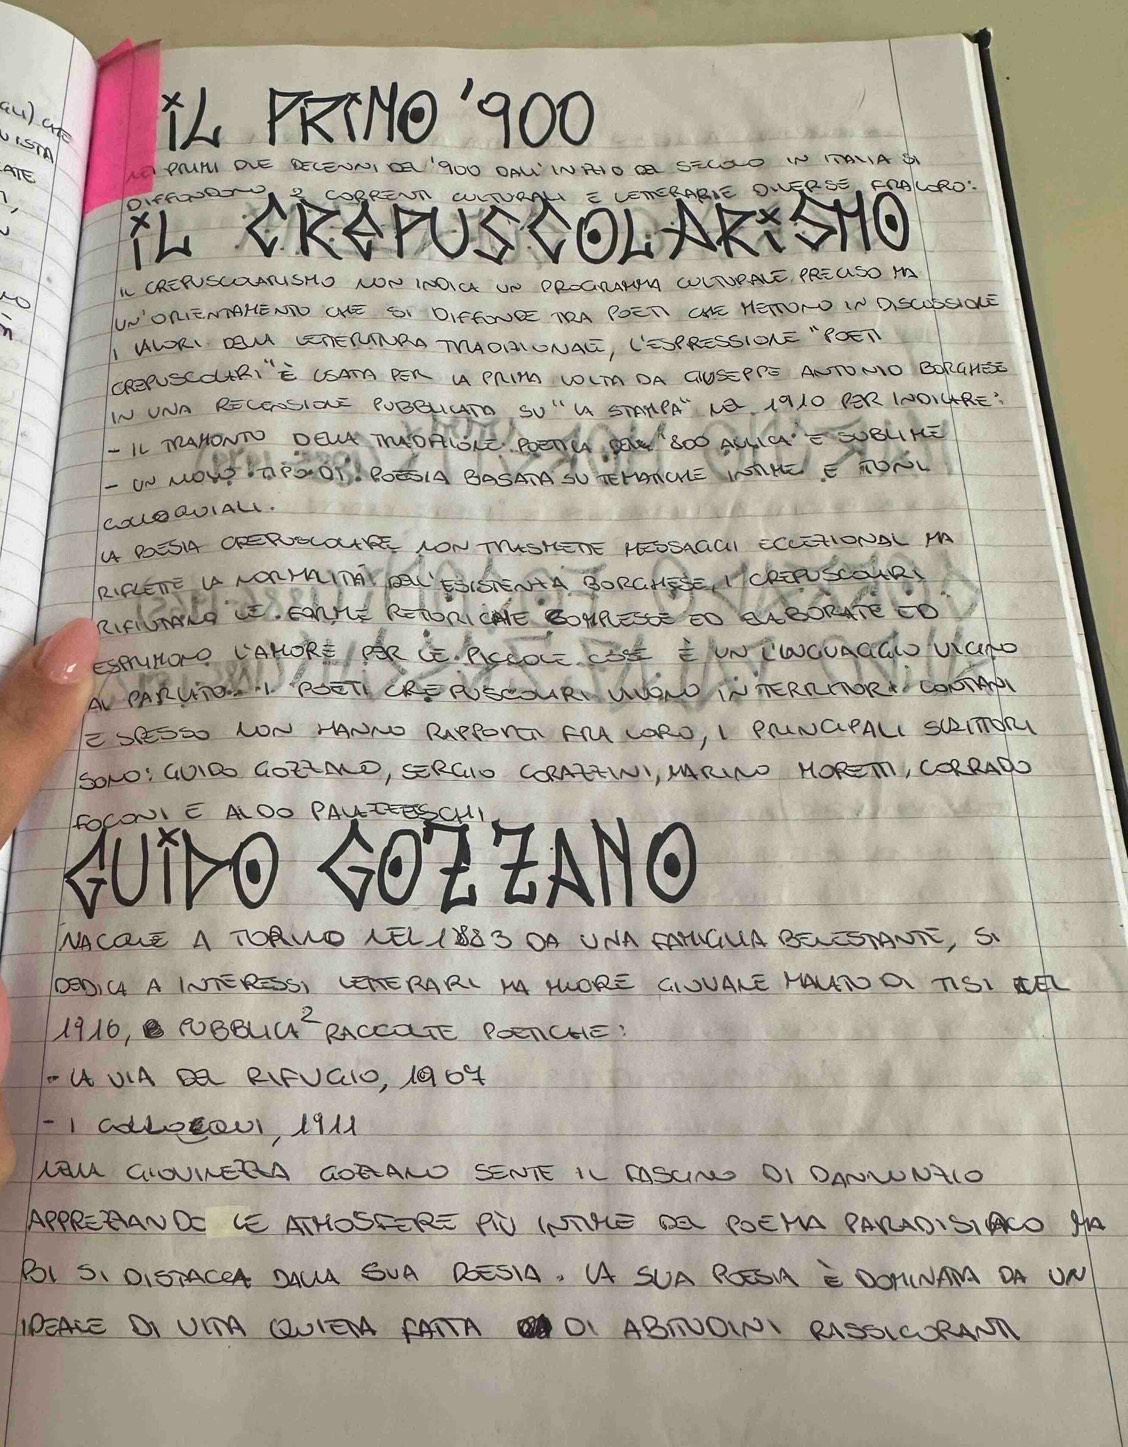 GLI) CHE
VISTA
IL PRIMO '900
NEI PRIMI DUE DECENNI DEL '900 DALL'INIZIO DEL SECOLO IN ITALIA SI
DIFFONDONO 2 CORRENTI CULTURALI E LETTERARIE DIVERSE FRA LORO:
IL CREPUSCOLARISMO
IL CREPUSCOLARISMO NON INDICA UN PROGRAMMA CULTURALE PRECISO MA
UN'ORIENTAMENTO CHE SI DIFFONDE TRA POETI CHE METTONO IN DISCUSSIONE
I VALORI DELLA LETTERATURA TRADIZIONALE, L'ESPRESSIONE "POETI
CREPUSCOLARI" È USATA PER LA PRIMA VOLTA DA GIUSEPPE ANTONIO BORGHESE
IN UNA RECENSIONE PUBBLICATA SU "LA STAMPA" NEL 1910 PER INDICARE:
- IL TRAMONTO DELLA TRADIZIONE POETICA DELL'800 AULICA E SUBLIME
- UN NUOVO TIPO DI POESIA BASATA SU TEMATICHE INTIME E TONI
COLLOQUIALI.
LA POESIA CREPUSCOLARE NON TRASMETTE MESSAGGI ECCEZIONALI MA
RIFLETTE LA NORMALITÀ DELL'ESISTENZA BORGHESE, I CREPUSCOLARI
RIFIUTANO LE FORME RETORICHE COMPLESSE ED ELABORATE ED
ESPRIMONO L'AMORE PER LE PICCOLE COSE È UN LINGUAGGIO VICINO
AL PARLATO. I POETI CREPUSCOLARI VIVONO IN TERRITORI LONTANI
E SPESSO NON HANNO RAPPORTI FRA LORO, I PRINCIPALI SCRITTORI
SONO: GUIDO GOZZANO, SERGIO CORAZZINI, MARINO MORETTI, CORRADO
GOVONI E ALDO PALAZZESCHI.
GUIDO GOZZANO
NACQUE A TORINO NEL 1883 DA UNA FAMIGLIA BENESTANTE, SI
DEDICA A INTERESSI LETTERARI MA MUORE GIOVANE MALATO DI TISI NEL
1916, PUBBLICA 2 RACCOLTE POETICHE:
- LA VIA DEL RIFUGIO, 1907
- I COLLOQUI, 1911
NELLA GIOVINEZZA GOZZANO SENTE IL FASCINO DI DANNUNZIO
APPREZZANDO LE ATMOSFERE PIÙ INTIME DEL POEMA PARADISIACO MA
POI SI DISTACCA DALLA SUA POESIA. LA SUA POESIA È DOMINATA DA UN
IDEALE DI VITA QUIETA FATTA DI ABITUDINI RASSICURANTI